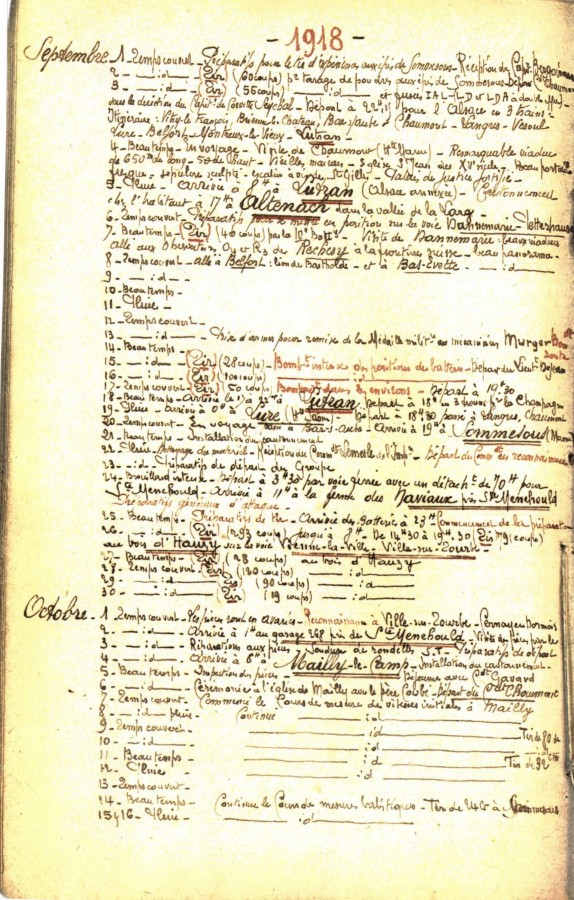 - 1918 -
Septembre - 1 - Temps couvert - Préparatifs pour le tir d'expériences aux épis de Sommesous - Réception du Capt.
2 - — id — (Tir) (60 coups) pr tarage de poudres aux épis de Sommesous - Départ du Capt Chaumont
3 - — id — (Tir) (55 coups) — id — et fusées IAL - LD et LDA à double
sous la direction du Capit. de Corvte - Départ à 22h15 pour l'Alsace en 3 trains -
Itinéraire : Vitry-le-François, Brienne-le-Chateau, Bar sur Aube - Chaumont - Langres - Vesoul
Lure - Belfort - Montreux-le-Vieux - Lutran -
4 - Beau temps - En voyage - Visite de Chaumont (Hte Marne) - Remarquable viaduc
de 650m de long - 50 de haut - Vieilles maisons - Eglise St Jean des XVe siècle - Beau portail
sépulcre sculpté - escalier à vis de St Gilles - Palais de Justice fortifié -
5 - Pluie - Arrivée à 8h à Lutran (Alsace annexée) - Cantonnement
chez l'habitant à 17h à Altenach dans la vallée de la Larg -
6 - Temps couvert - Préparatifs pour la mise en position sur la voie Dannemarie - Pfetterhause
7 - Beau temps - (Tir) (40 coups) par la 10e Battie - Visite de Dannemarie - beaux viaducs
allé aux Observatoires de Rechesy à la frontière suisse - beau panorama -
8 - Temps couvert - allé à Belfort : lion de Bartholdi - et à Bas-Evette - — id —
9 - — id —
10 - Beau temps -
11 - Pluie -
12 - Temps couvert -
13 - — id — - Prise d'armes pour remise de la Médaille milite au mécanicien Murger
14 - Beau temps -
15 - — id — (Tir) (28 coups) - Bombt intense des positions de batterie - Départ du Lieut Dejean
16 - — id — (Tir) (100 coups)
17 - Temps couvert - (Tir) 50 coups Bombardt dans les environs - Départ à 19h30
18 - Beau temps - Arrivée le 1er à 22h15 Lutran, Départ à 18h en 3 pour la Champagne
19 - Pluie - arrivée à 0h à Lure (Hte Saone) - Départ à 18h30 passé à Langres, Chaumont
20 - Temps couvert - En voyage passé à Bar s. Aube - Arrivée à 19h à Sommesous (Marne)
21 - Beau temps - Installation du cantonnement
22 - Pluie - Arrimage du matériel - Réception du Commt de l'Infie - Départ du Commt en reconnaissance
23 - — id — Préparatifs de départ du Groupe
24 - Brouillard intense - Départ à 3h30 par voie ferrée avec un détacht de 70h pour
Ste Menehould - Arrivée à 11h à la ferme des Naviaux près Ste Menehould
Préparatifs généraux d'attaque -
25 - Beau temps - Préparatifs de tir - Arrivée des Batterie à 23h - Commencement de la préparation
26 - — id — (Tir) (293 coups) jusqu'à 8h - De 14h30 à 19h30 (Tir) (79 coups)
au bois d'Hauzy sur la voie Vienne-la-Ville, Ville-sur-Tourbe
27 - Beau temps - (Tir) (28 coups) au bois d'Hauzy
28 - Temps couvert (Tir) (180 coups) — id —
29 - — id — (Tir) (90 coups) — id —
30 - — id — (Tir) (19 coups) — id —
Octobre - 1 - Temps couvert - Les pièces sont en avaries - Reconnaissance à Ville-sur-Tourbe - Cernay en Dormois
2 - — id — Arrivée à 1h au garage 268 près de Ste Menehould - Visite des pièces par le
3 - — id — Réparations aux pièces - Soudage de rondelles S.T - Préparatifs de départ
4 - — id — Arrivée à 6h à Mailly-le-Camp - Installation du cantonnement -
5 - Beau temps - Inspection des pièces - Déjeuner avec Gavard
6 - — id — Cérémonie à l'église de Mailly avec le père Coubé - Départ du Capt Chaumont
7 - Temps couvert - Commencé le Cours de mesure de vitesses initiales à Mailly
8 - — id — pluie - Continué — id —
9 - Temps couvert — id — Tirs de
10 - — id — — id —
11 - Beau temps - — id — Tirs de 32cm
12 - Pluie - — id —
13 - Temps couvert -
14 - Beau temps - Continué le Cours de mesures balistiques - Tirs de 240 à Sommesous
15 y 16 - Pluie - — id —